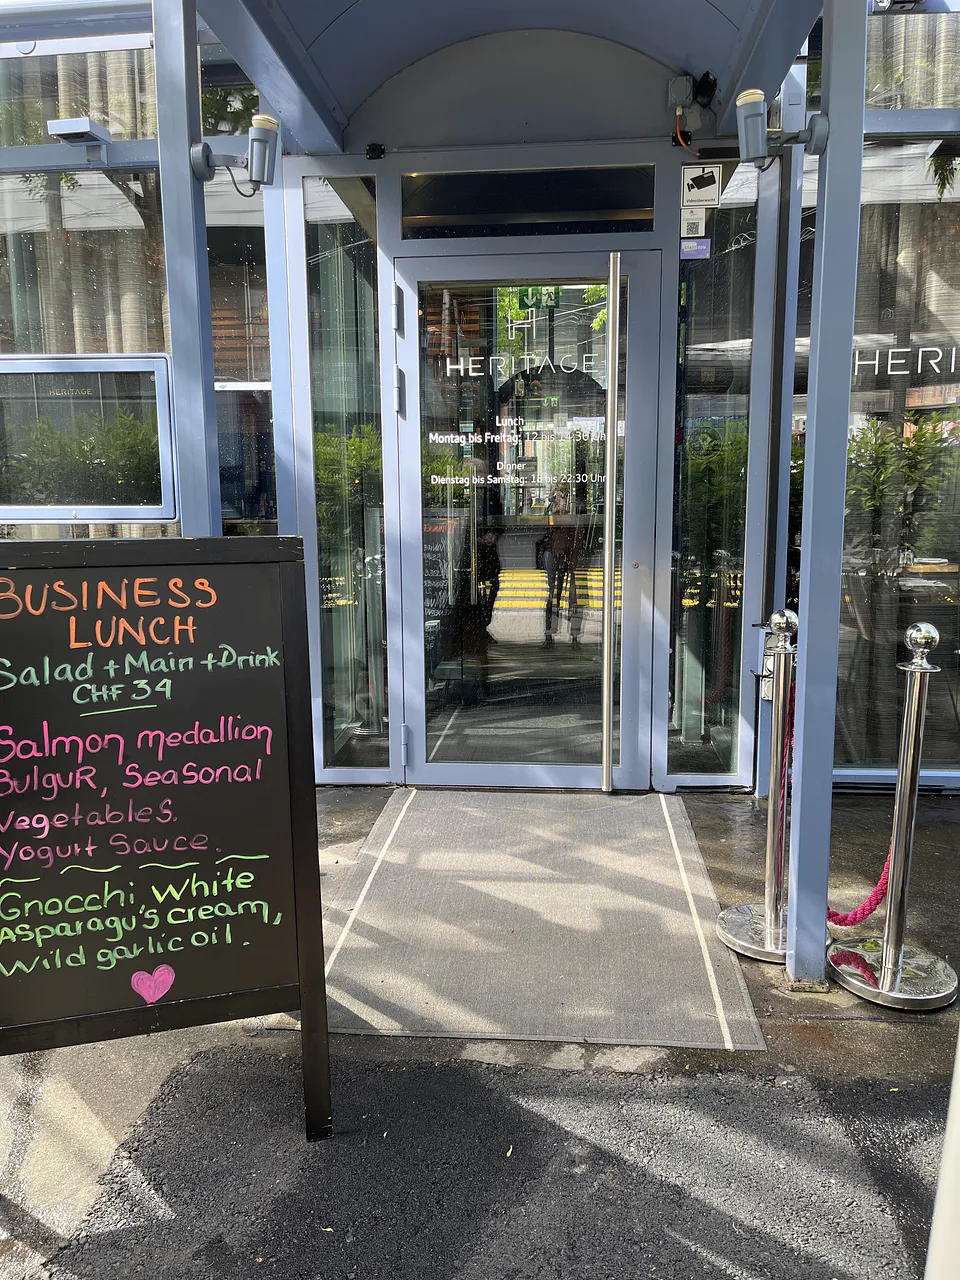 HERITAGE
BUSINESS
LUNCH
Salad + Main + Drink
CHF 34
Salmon medallion
BulguR, Seasonal
vegetables.
Yogurt Sauce.
Gnocchi, White
Asparagu's cream,
Wild garlic oil.
Videoüberwacht
H
HERITAGE
Lunch
Montag bis Freitag: 12 bis 14:30 Uhr
Dinner
Dienstag bis Samstag: 18 bis 22:30 Uhr
HERI